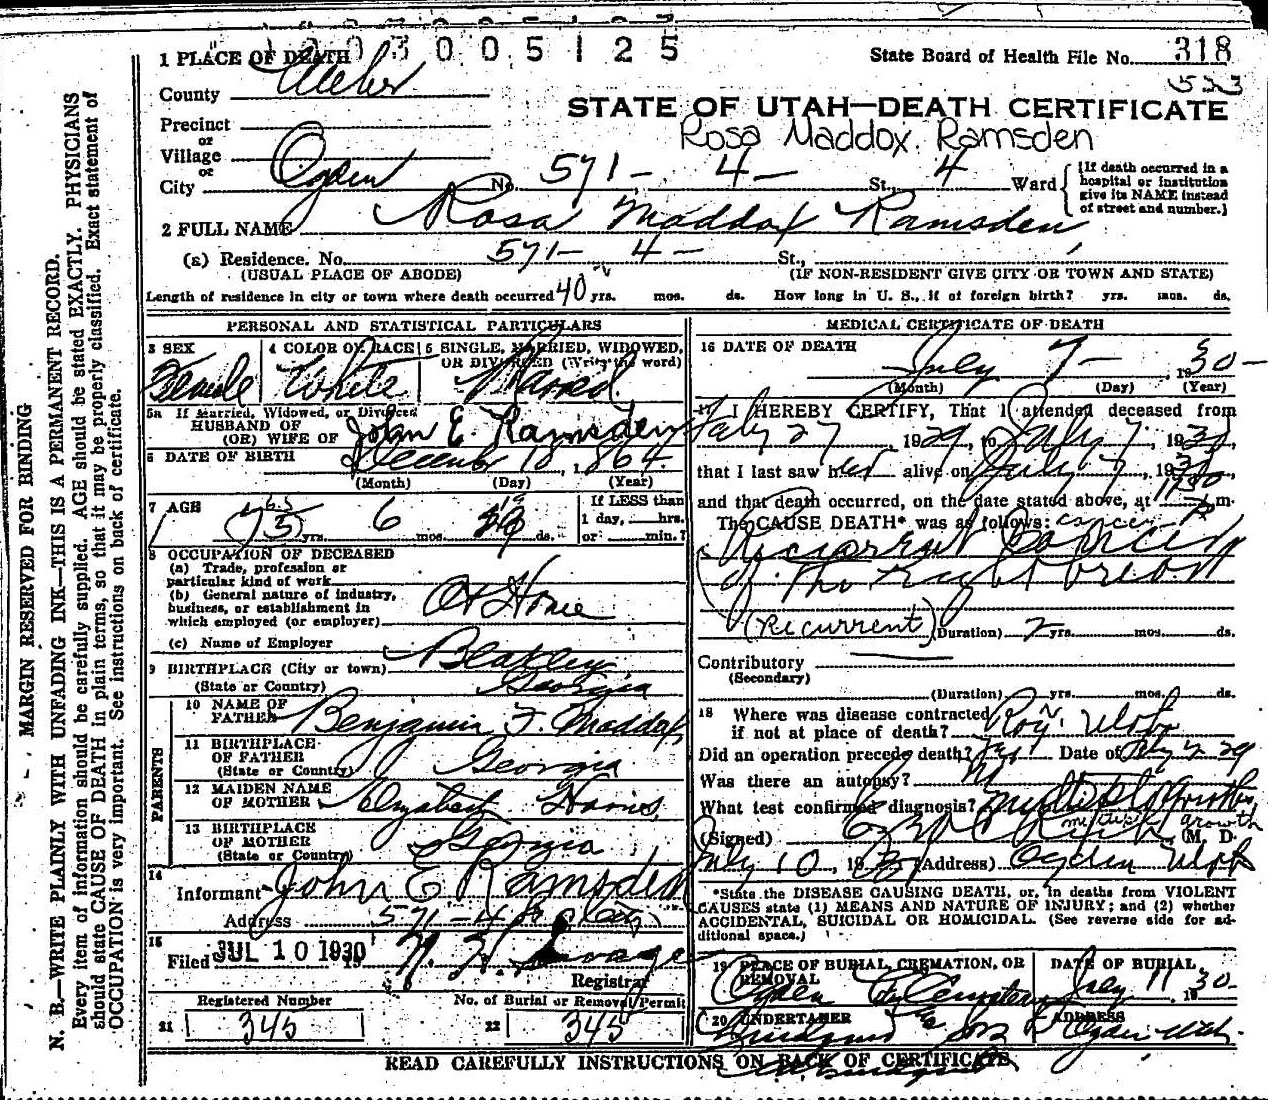 3005125
State Board of Health File No. 318
553
1 PLACE OF DEATH
County Weber
STATE OF UTAH—DEATH CERTIFICATE
Rosa Maddox Ramsden
Precinct
or
Village
or
City Ogden No. 571 - 4 - St., 4 Ward
{If death occurred in a hospital or institution give its NAME instead of street and number.}
2 FULL NAME Rosa Maddox Ramsden
(a) Residence. No. 571- 4 - St.,
(USUAL PLACE OF ABODE) (IF NON-RESIDENT GIVE CITY OR TOWN AND STATE)
Length of residence in city or town where death occurred 40 yrs. mos. ds. How long in U. S., if of foreign birth? yrs. mos. ds.
PERSONAL AND STATISTICAL PARTICULARS
3 SEX Female
4 COLOR OR RACE White
5 SINGLE, MARRIED, WIDOWED, OR DIVORCED (Write the word) Married
5a If Married, Widowed, or Divorced
HUSBAND OF
(OR) WIFE OF John E. Ramsden
6 DATE OF BIRTH December 18, 1864.
(Month) (Day) (Year)
7 AGE 65 yrs. 6 mos. 19 ds.
If LESS than
1 day, hrs.
or min.?
8 OCCUPATION OF DECEASED
(a) Trade, profession or
particular kind of work
(b) General nature of industry,
business, or establishment in
which employed (or employer)
At Home
(c) Name of Employer
9 BIRTHPLACE (City or town) Blakley
(State or Country) Georgia
PARENTS
10 NAME OF
FATHER Benjamin F. Maddox
11 BIRTHPLACE
OF FATHER
(State or Country) Georgia
12 MAIDEN NAME
OF MOTHER Elizabeth
13 BIRTHPLACE
OF MOTHER
(State or Country) Georgia
14
Informant John E Ramsden
Address 571-4 St City
15
Filed JUL 10 1930 19 N. H. Savage
Registrar
Registered Number No. of Burial or Removal Permit
21 345 22 345
MEDICAL CERTIFICATE OF DEATH
16 DATE OF DEATH July 7- 1930-
(Month) (Day) (Year)
17 I HEREBY CERTIFY, That I attended deceased from
July 27, 1929, to July 7, 1930,
that I last saw her alive on July 7, 1930,
and that death occurred, on the date stated above, at m.
The CAUSE DEATH* was as follows: cancer
Recurrent Cancer
of the right breast
(Recurrent) (Duration) 2 yrs. mos. ds.
Contributory
(Secondary)
(Duration) yrs. mos. ds.
18 Where was disease contracted
if not at place of death? Roy Utah
Did an operation precede death? Yes Date of July 27 29
Was there an autopsy?
What test confirmed diagnosis? growth
multiple growth
(Signed) (M. D.
July 10, 1930 (Address) Ogden Utah
*State the DISEASE CAUSING DEATH, or, in deaths from VIOLENT
CAUSES state (1) MEANS AND NATURE OF INJURY; and (2) whether
ACCIDENTAL, SUICIDAL OR HOMICIDAL. (See reverse side for ad-
ditional space.)
19 PLACE OF BURIAL, CREMATION, OR
REMOVAL
Ogden City Cemetery
DATE OF BURIAL
July 11 1930-
20 UNDERTAKER ADDRESS
Ogden Utah.
READ CAREFULLY INSTRUCTIONS ON BACK OF CERTIFICATE
MARGIN RESERVED FOR BINDING
N. B.—WRITE PLAINLY WITH UNFADING INK—THIS IS A PERMANENT RECORD.
Every item of information should be carefully supplied. AGE should be stated EXACTLY. PHYSICIANS
should state CAUSE OF DEATH in plain terms, so that it may be properly classified. Exact statement of
OCCUPATION is very important. See instructions on back of certificate.